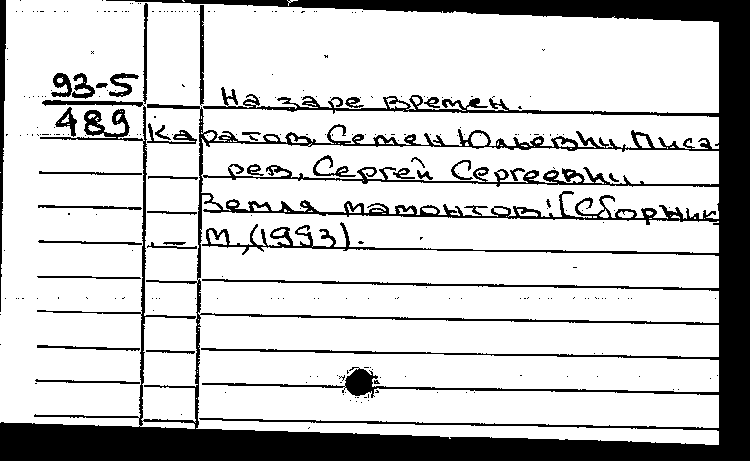 93-5
489
На заре времен.
Каратов, Семен Юльевич, Писа-
рев, Сергей Сергеевич.
Земля мамонтов: [Сборник]
.— М.,(1993).